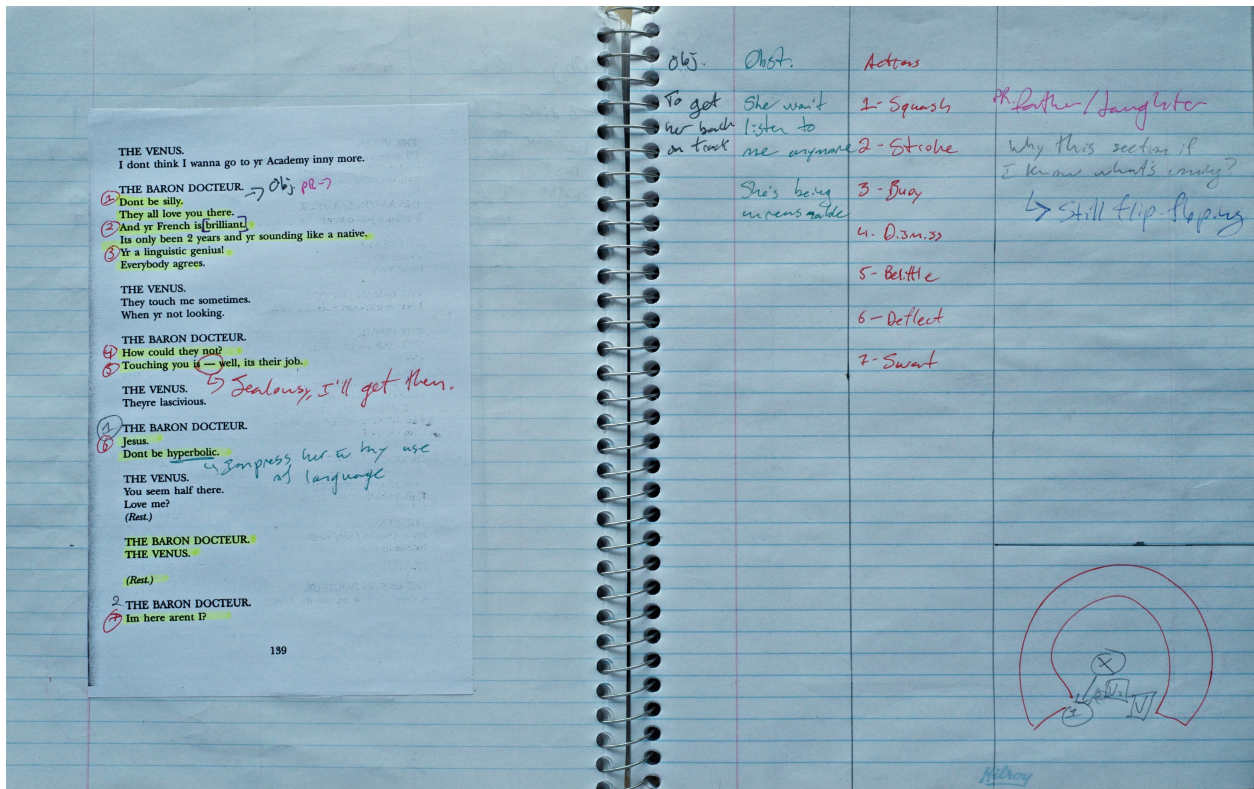 THE VENUS.
I dont think I wanna go to yr Academy inny more.
THE BARON DOCTEUR. → Obj. PR→
1 Dont be silly.
They all love you there.
2 And yr French is [brilliant.]
Its only been 2 years and yr sounding like a native.
3 Yr a linguistic genius!
Everybody agrees.
THE VENUS.
They touch me sometimes.
When yr not looking.
THE BARON DOCTEUR.
4 How could they not?
5 Touching you is — well, its their job.
↳ Jealousy, I'll get them.
THE VENUS.
Theyre lascivious.
1 THE BARON DOCTEUR.
6 Jesus.
Dont be hyperbolic.
↳ Impress her w my use
of language
THE VENUS.
You seem half there.
Love me?
(Rest.)
THE BARON DOCTEUR.
THE VENUS.
(Rest.)
2 THE BARON DOCTEUR.
7 Im here arent I?
139
Obj.
To get
her back
on track
Obst.
She won't
listen to
me anymore
She's being
unreasonable
Actions
1- Squash
2- Stroke
3- Buoy
4. Dismiss
5- Belittle
6- Deflect
7- Swat
PR: father/daughter
Why this section if
I know what's coming?
↳ Still flip-flopping
X
V2
1
V
Hilroy